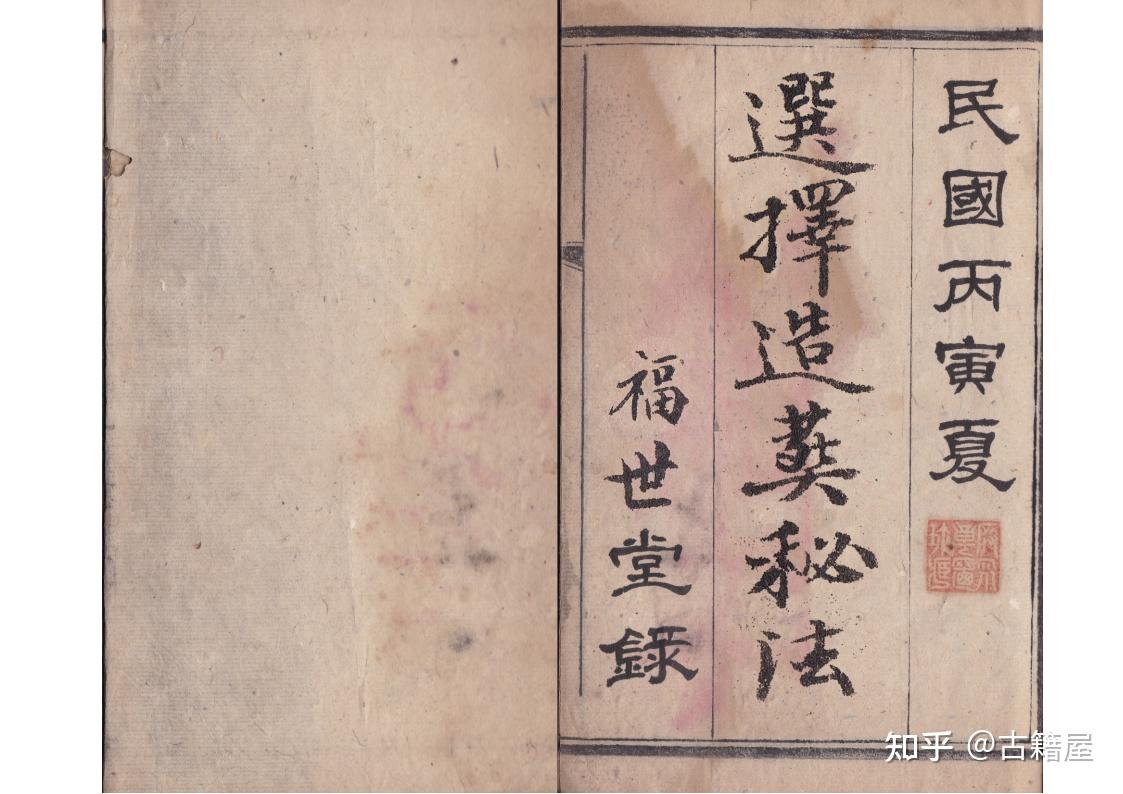 民國丙寅夏
選擇造葬秘法
福世堂錄
知乎 @古籍屋